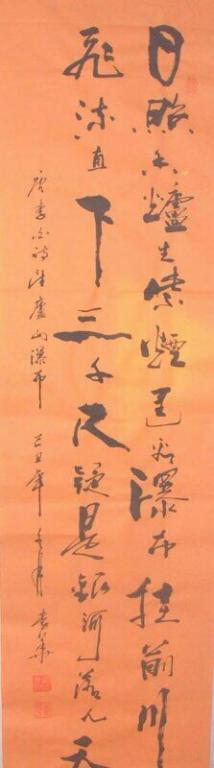 日照香炉生紫烟遥看瀑布挂前川
飞流直下三千尺疑是银河落九天
唐李白诗望庐山瀑布 己丑年